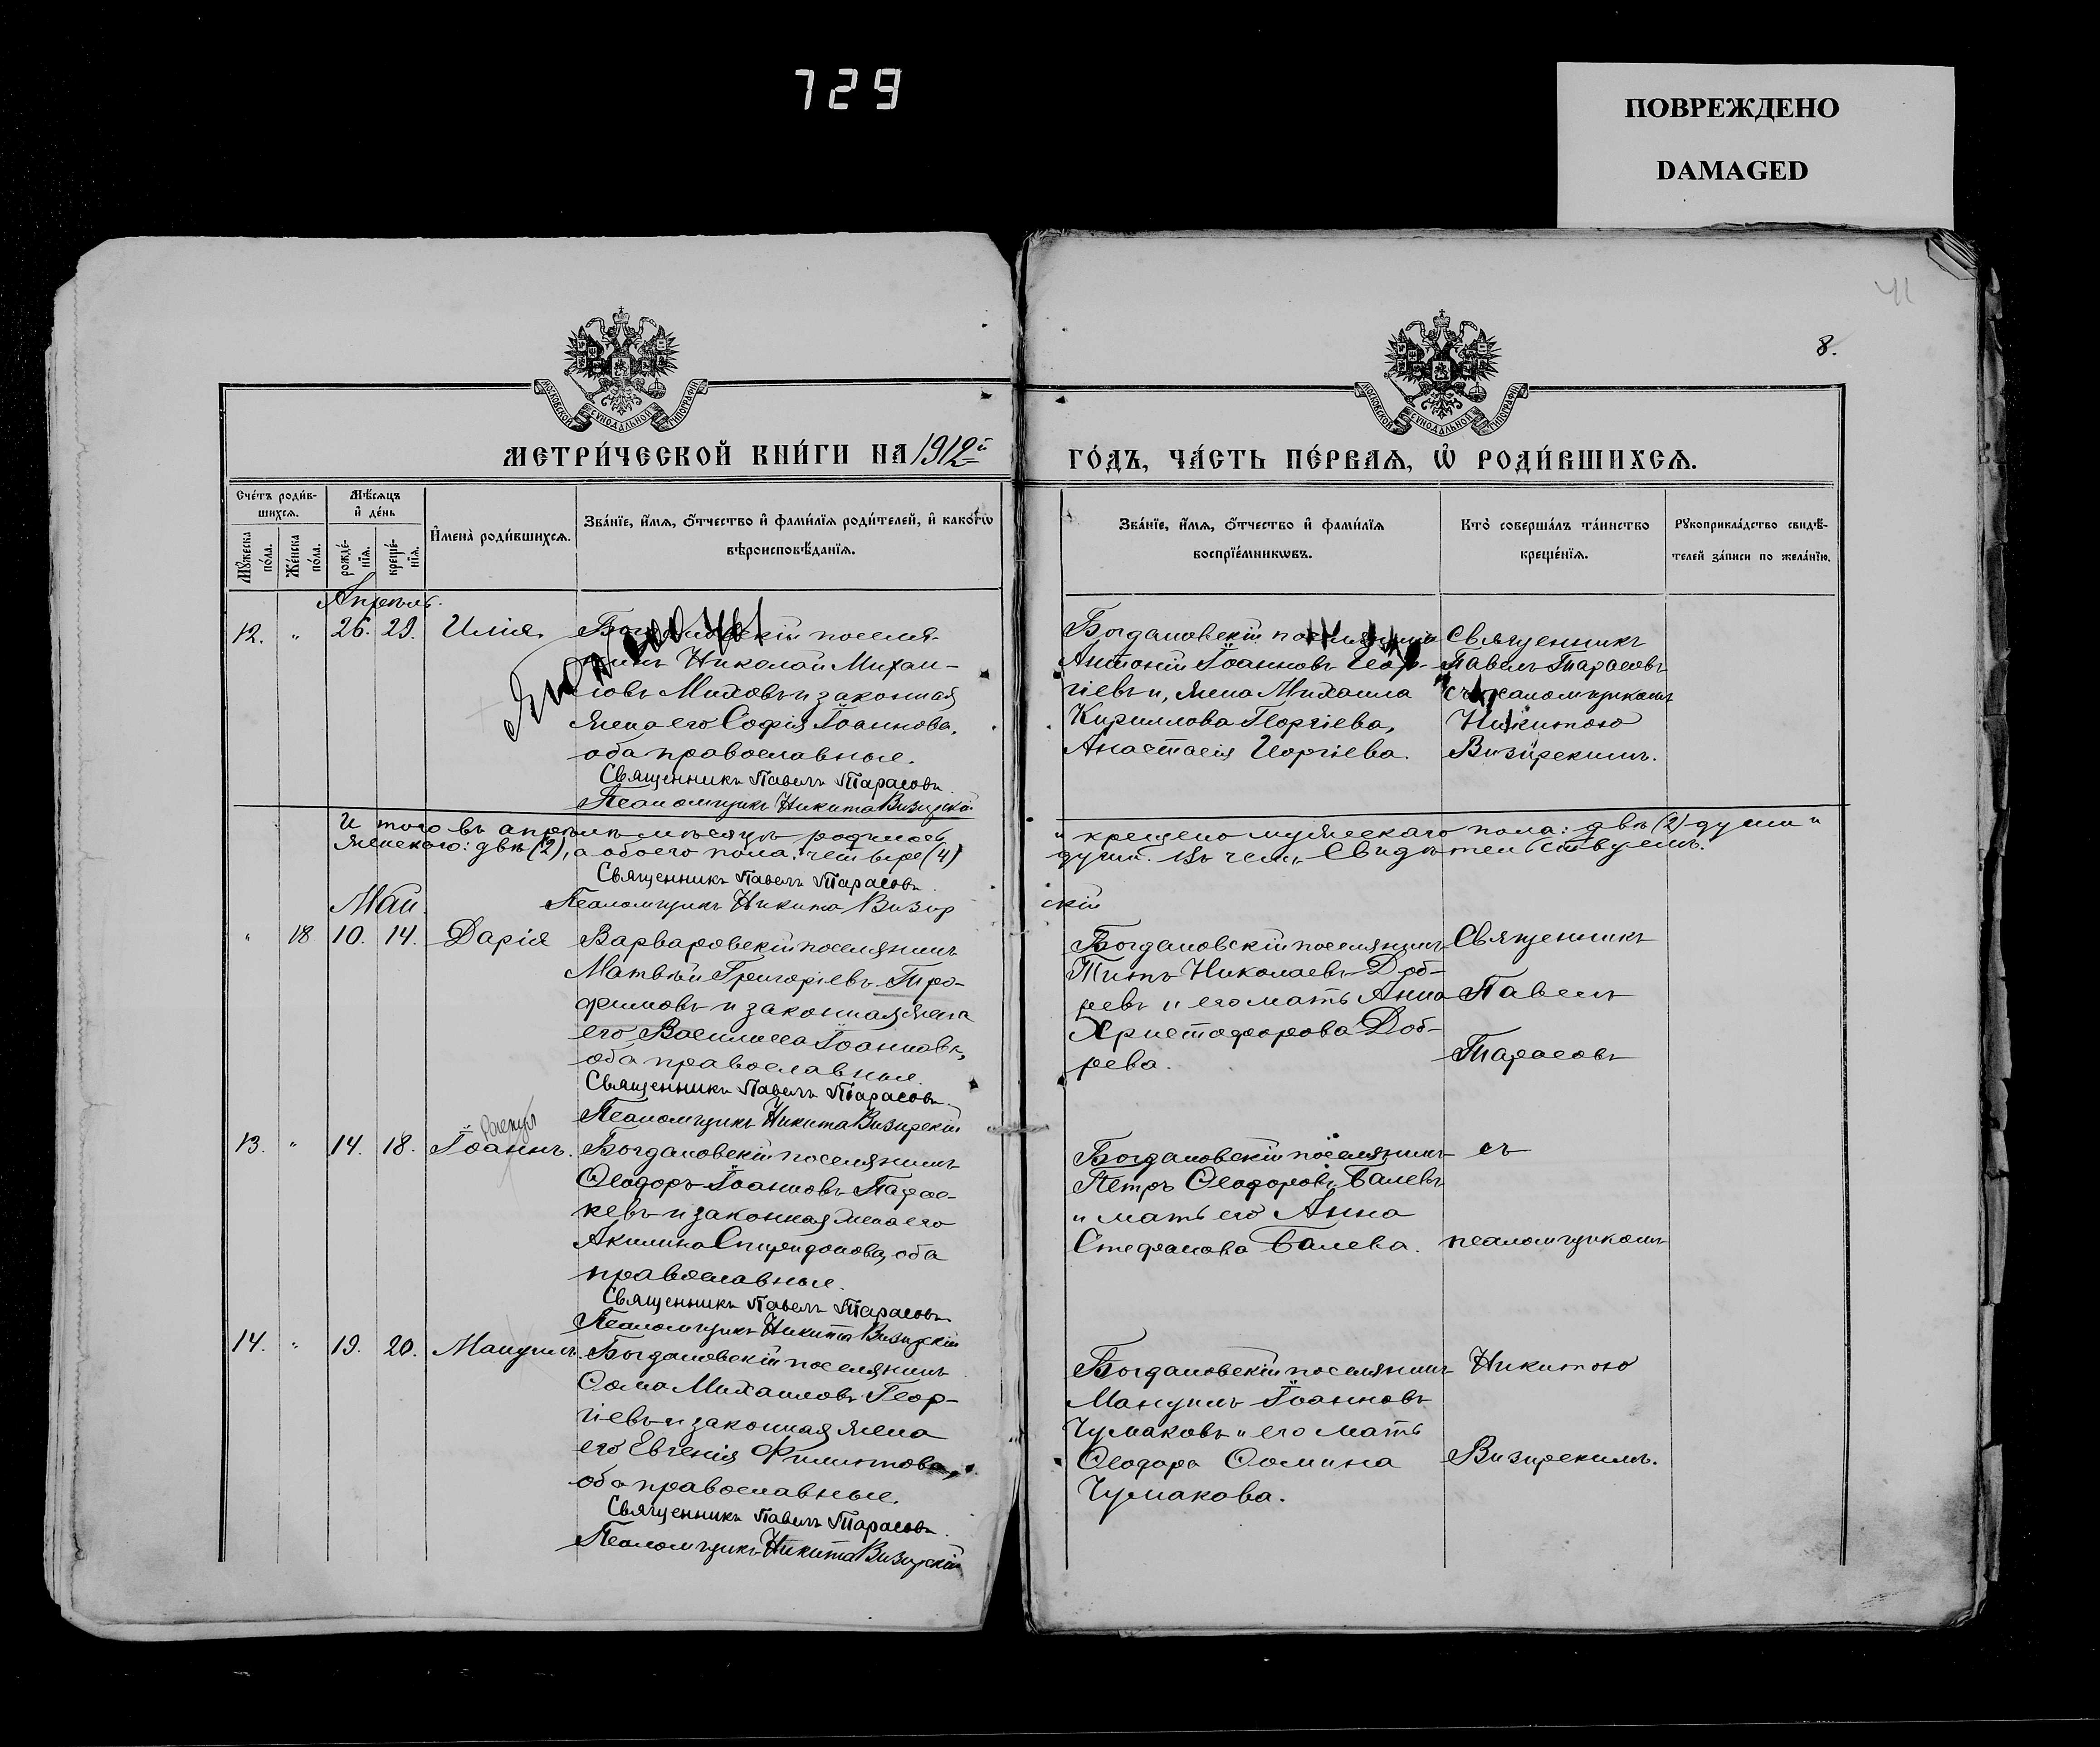 729
ПОВРЕЖДЕНО
DAMAGED
41
8.
МОСКОВСКОЙ СѴНОДАЛЬНОЙ ТИПОГРАФІИ
МОСКОВСКОЙ СѴНОДАЛЬНОЙ ТИПОГРАФІИ
МЕТРИ́ЧЕСКОЙ КНИ́ГИ НА 1912й
ГО́ДЪ, ЧА́СТЬ ПЕ́РВАѦ, Ѡ҆ РОДИ́ВШИХСѦ.
Сче́тъ роди́в-
шихсѧ.
Мѣ́сѧцъ
и҆ де́нь
Мꙋ́жеска
по́ла.
Же́нска
по́ла.
рожде́-
нїѧ.
креще́-
нїѧ.
И҆мена̀ роди́вшихсѧ.
Зва́нїе, и҆́мѧ, ѻ҆́тчество и҆ фами́лїѧ роди́телей, и҆ како́гѡ
вѣроисповѣ́данїѧ.
Зва́нїе, и҆́мѧ, ѻ҆́тчество и҆ фами́лїѧ
воспрїе́мникѡвъ.
Кто̀ соверша́лъ та́инство
креще́нїѧ.
Рꙋкоприкла́дство свидѣ́-
телей за́писи по жела́нїю.
Апрѣль.
12. " 26. 29. Илія.
Богдановскій поселя-
нинъ Николай Михаи-
ловъ Миховъ и законная
жена его Софія Іоаннова,
оба православные.
Священникъ Павелъ Тарасовъ.
Псаломщикъ Никита Визирскій
Богдановскій поселянинъ
Антоній Іоанновъ Геор-
гіевъ и, жена Михаила
Кириллова Георгіева,
Анастасія Георгіева.
Священникъ
Павелъ Тарасовъ
съ псаломщикомъ
Никитою
Визирскимъ.
Итого въ апрѣлѣ мѣсяцѣ родилось
" крещено мужескаго пола: двѣ (2) души "
женскаго: двѣ (2), а обоего пола: четыре (4)
души. Въ чемъ, свидѣтельствуемъ.
Священникъ Павелъ Тарасовъ.
Псаломщикъ Никита Визир
скій
Май.
" 18. 10. 14. Дарія
Варваровскій поселянинъ
Матвѣй Григоріевъ Тро-
фимовъ и законная жена
его Василисса Іоаннова,
оба православные.
Священникъ Павелъ Тарасовъ.
Псаломщикъ Никита Визирскій
Богдановскій поселянинъ
Титъ Николаевъ Доб-
ревъ и его мать Анна
Христофорова Доб-
рева.
Священникъ
Павелъ
Тарасовъ
13. " 14. 18. Іоаннъ.
Богдановскій поселянинъ
Ѳеодоръ Іоанновъ Парас-
кевъ и законная жена его
Акилина Спиридонова, оба
православные.
Священникъ Павелъ Тарасовъ
Псаломщикъ Никита Визирскій
Богдановскій поселянинъ
Петръ Ѳеодоровъ Балевъ
и мать его Анна
Стефанова Балева.
съ
псаломщикомъ
14. " 19. 20. Мануилъ.
Богдановскій поселянинъ
Ѳома Михаиловъ Геор-
гіевъ и законная жена
его Евгенія Филиппова,
оба православные.
Священникъ Павелъ Тарасовъ.
Псаломщикъ Никита Визирскій
Богдановскій поселянинъ
Мануилъ Іоанновъ
Чумаковъ и его мать
Ѳеодора Ѳомина
Чумакова.
Никитою
Визирскимъ.